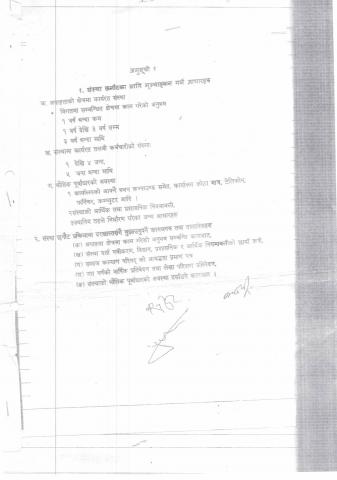 अनुसूची १
१. संस्था छनौटका लागि मूल्याङ्कन गर्ने आधारहरू
क. अपाङ्गताको क्षेत्रमा कार्यरत संस्था
विगतमा सम्बन्धित क्षेत्रमा काम गरेको अनुभव
१ वर्ष भन्दा कम
१ वर्ष देखि ३ वर्ष सम्म
३ वर्ष भन्दा माथि
ख. संस्थामा कार्यरत तलबी कर्मचारीको संख्या
१ देखि ४ जना,
५ जना भन्दा माथि
ग. भौतिक पूर्वाधारको अवस्था
१ कार्यालयको आफ्नै भवन कम्पाउण्ड समेत, कार्यालय कोठा मात्र, टेलिफोन,
फर्निचर, कम्प्युटर आदि ।
संस्थाको आर्थिक तथा प्रशासनिक नियमावली,
स्थानीय तहले निर्धारण गरेका अन्य आधारहरू
२. संस्था छनौट प्रक्रियामा पेश गर्नुपर्ने कागजपत्र तथा दस्तावेजहरू
(क) अपाङ्गता क्षेत्रमा काम गरेको अनुभव सम्बन्धि कागजात,
(ख) संस्था दर्ता नवीकरण, विधान, प्रशासनिक र आर्थिक नियमावलीको छायाँ प्रति,
(ग) समाज कल्याण परिषद् को आबद्धता प्रमाण पत्र
(घ) गत वर्षको आर्थिक प्रतिवेदन तथा लेखा परीक्षण प्रतिवेदन,
(ङ) संस्थाको भौतिक पूर्वाधारको अवस्था दर्शाउने कागजात ।